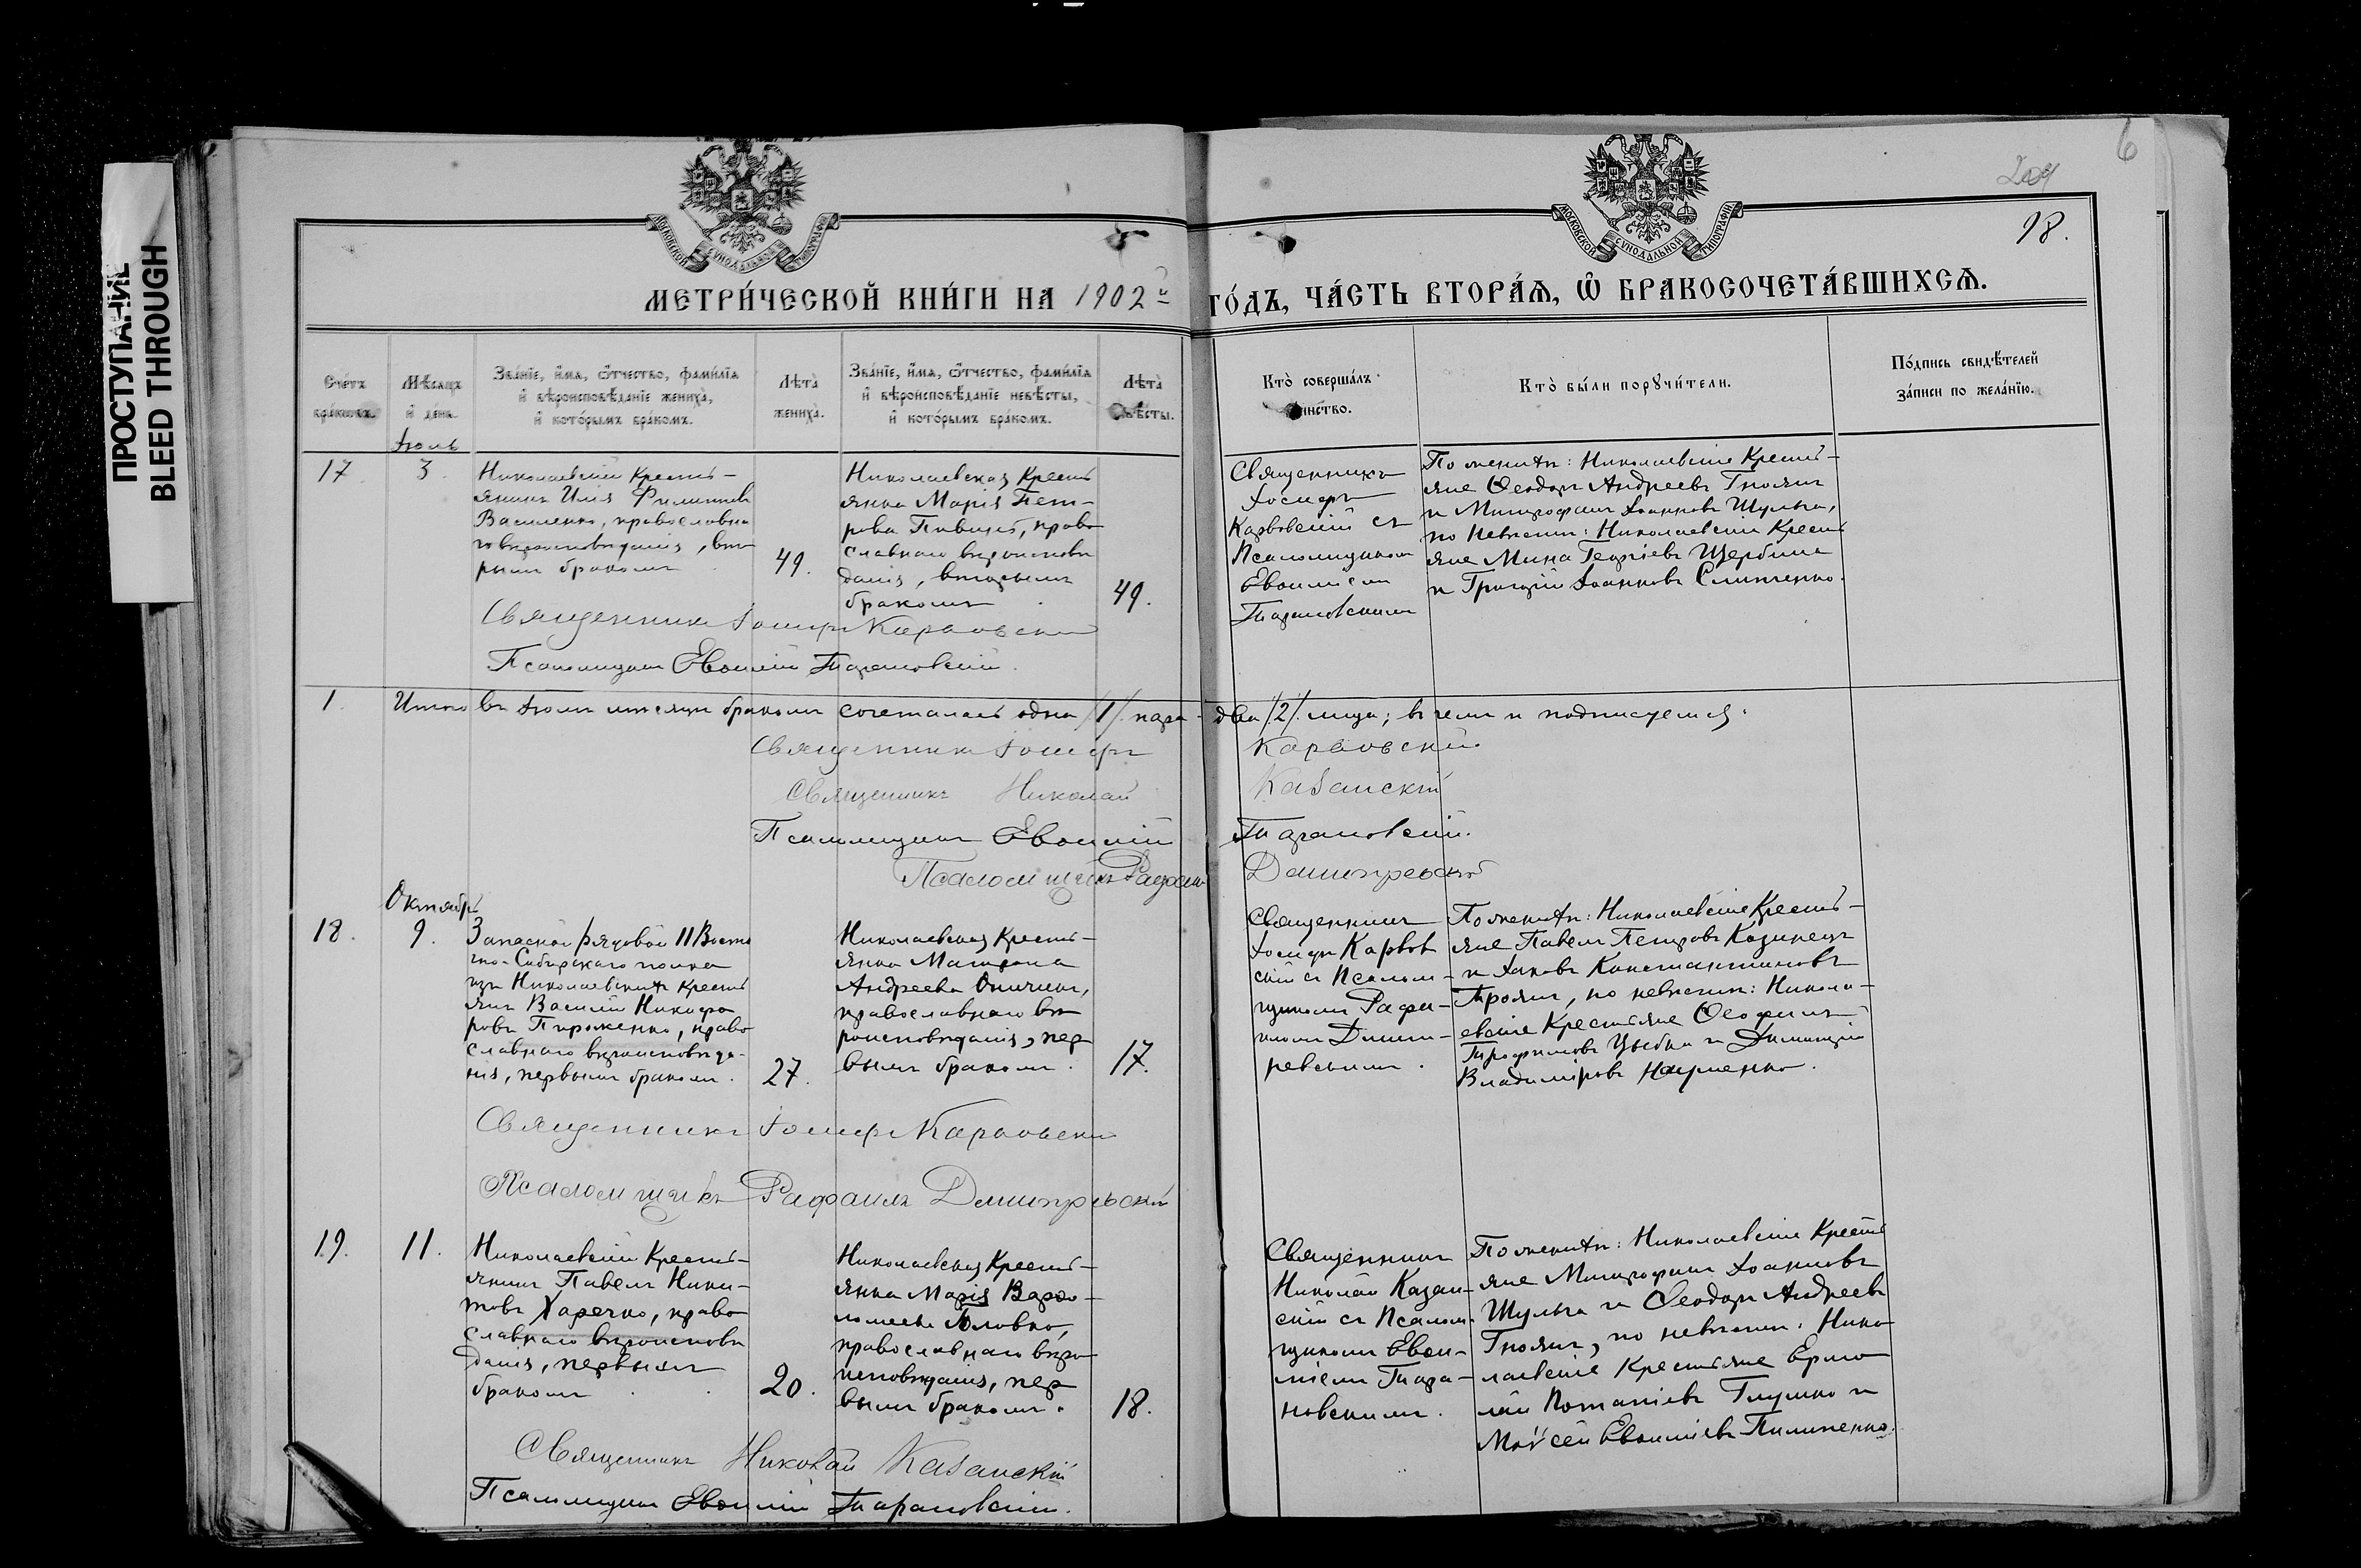 ПРОСТУПАНИЕ
BLEED THROUGH
6
209
МОСКОВСКОЙ СѴНОДАЛЬНОЙ ТИПОГРАФІИ
МОСКОВСКОЙ СѴНОДАЛЬНОЙ ТИПОГРАФІИ
18.
МЕТРИ́ЧЕСКОЙ КНИ́ГИ НА 1902й
ГО́ДЪ, ЧА́СТЬ ВТОРА́Ѧ, Ѡ҆ БРАКОСОЧЕТА́ВШИХСѦ.
Счетъ
браковъ.
Мѣсяцъ
и҆ день.
Зва́нїе, и҆́мѧ, ѻ҆́тчество, фамилїѧ
и҆ вѣроисповѣданїе жениха̀,
и҆ кото́рымъ бра́комъ.
Лѣта̀
жениха̀.
Зва́нїе, и҆́мѧ, ѻ҆́тчество, фамилїѧ
и҆ вѣроисповѣданїе невѣсты,
и҆ кото́рымъ бра́комъ.
Лѣта̀
невѣсты.
Кто̀ соверша́лъ
таинство.
Кто̀ бы́ли порꙋчи́тели.
По́дпись свидѣтелей
за́писи по жела́нїю.
Іюль
17.
3.
Николаевскій Кресть-
янинъ Илія Филиповъ
Василенко, православна
го вѣроисповѣданія, вто
рымъ бракомъ
49.
Николаевская Кресть
янка Марія Пет-
рова Пивнева, право
славнаго вѣроисповѣ
данія, вторымъ
бракомъ.
49.
Священникъ
Іосифъ
Карвовскій съ
Псаломщикомъ
Евфиміем
Тарановскимъ
По женихѣ: Николаевскіе Кресть-
яне Ѳеодоръ Андреевъ Гноякъ
и Митрофанъ Іоанновъ Шульга,
по Невѣстѣ: Николаевскіе Кресть
яне Мина Георгіевъ Щербина
и Григорій Іоанновъ Слипченко.
Священникъ Іосифъ Карвовскій
Псаломщикъ Евфимій Тарановскій.
1.
Итого въ Іюлѣ мѣсяцѣ бракомъ сочеталась одна /1/ пара - два /2/ лица; въ чемъ и подписуемся:
Священникъ Іосифъ Карвовскій
Священникъ Николай Казанскій
Псаломщикъ Евфимій Тарановскій.
Псаломщикъ Рафаилъ Димитревскій
Октябрь
18.
9.
Запасной рядовой 11 Восто
чно-Сибирскаго полка
изъ Николаевскихъ Кресть
янъ Василій Никифо
ровъ Пироженко, право
славнаго вѣроисповѣда-
нія, первымъ бракомъ.
27.
Николаевская Кресть-
янка Матрона
Андреева
православнаго вѣ
роисповѣданія, пер
вымъ бракомъ.
17.
Священникъ
Іосифъ Карвов
скій съ Псалом-
щикомъ Рафа-
иломъ Димит-
ревскимъ.
По женихѣ: Николаевскіе Кресть-
яне Павелъ Петровъ Казинецъ
и Іаковъ Константиновъ
Троянъ, по невѣстѣ: Никола-
евскіе Крестьяне Ѳеофилъ
Трофимовъ Цыбка и Димитрій
Владиміровъ Науменко.
Священникъ Іосифъ Карвовскій
Псаломщикъ Рафаилъ Димитревскій
19.
11.
Николаевскій Кресть-
янинъ Павелъ Ники-
товъ Харечко, право
славнаго вѣроисповѣ
данія, первымъ
бракомъ
20.
Николаевская Кресть-
янка Марія Варѳо-
ломеева Головко,
православнаго вѣро
исповѣданія, пер
вымъ бракомъ.
18.
Священникъ
Николай Казан-
скій съ Псалом-
щикомъ Евфи-
міемъ Тара-
новскимъ.
По женихѣ: Николаевскіе Кресть
яне Митрофанъ Іоанновъ
Шульга и Ѳеодоръ Андреевъ
Гноякъ, по невѣстѣ: Нико
лаевскіе Крестьяне Ермо
лай Потапіевъ Глушко и
Моѵсей Евфиміевъ Пилипенко.
Священникъ Николай Казанскій
Псаломщикъ Евфимій Тарановскій.